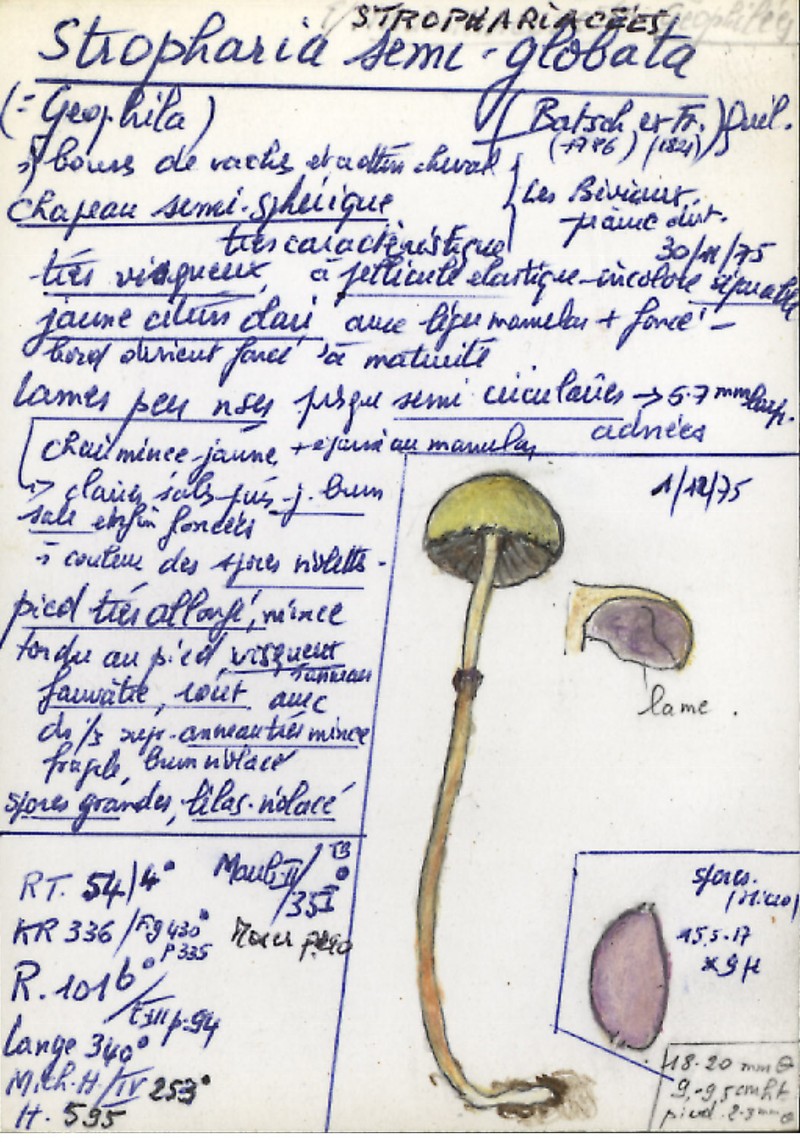 STROPHARIACÉES
Stropharia semi-globata
(= Geophila)
(Batsch ex Fr.) Quél.
(1786) (1821)
bouses de vache et crottin cheval
Les Biviers,
30/11/75
chapeau semi-sphérique
très caractéristique
très visqueux, à pellicule élastique-incolore séparable
jaune citrin clair avec léger mamelon + foncé -
bord devient foncé à maturité
lames peu nses presque semi circulaires → 6.7 mm larg.
adnées
chair mince-jaune, + épaisse au mamelon
→ claires sales puis j. brun
sale enfin foncées
à couleur des spores violettes -
1/12/75
pied très allongé, mince
tordu au pied, visqueux
fauvâtre, avec
anneau très mince
fragile, brun violacé
spores grandes, lilas-violacé
lame.
RT. 54/4°
KR 336 /Fg 430°
P 335
R. 101 b°
p. 94
Lange 340°
Mich. H/IV 253°
H. 595
355
spores.
(Micro)
15,5-17
x 9 µ
18-20 mm Θ
9,-9,5 cm ht
pied 2-3 mm Θ